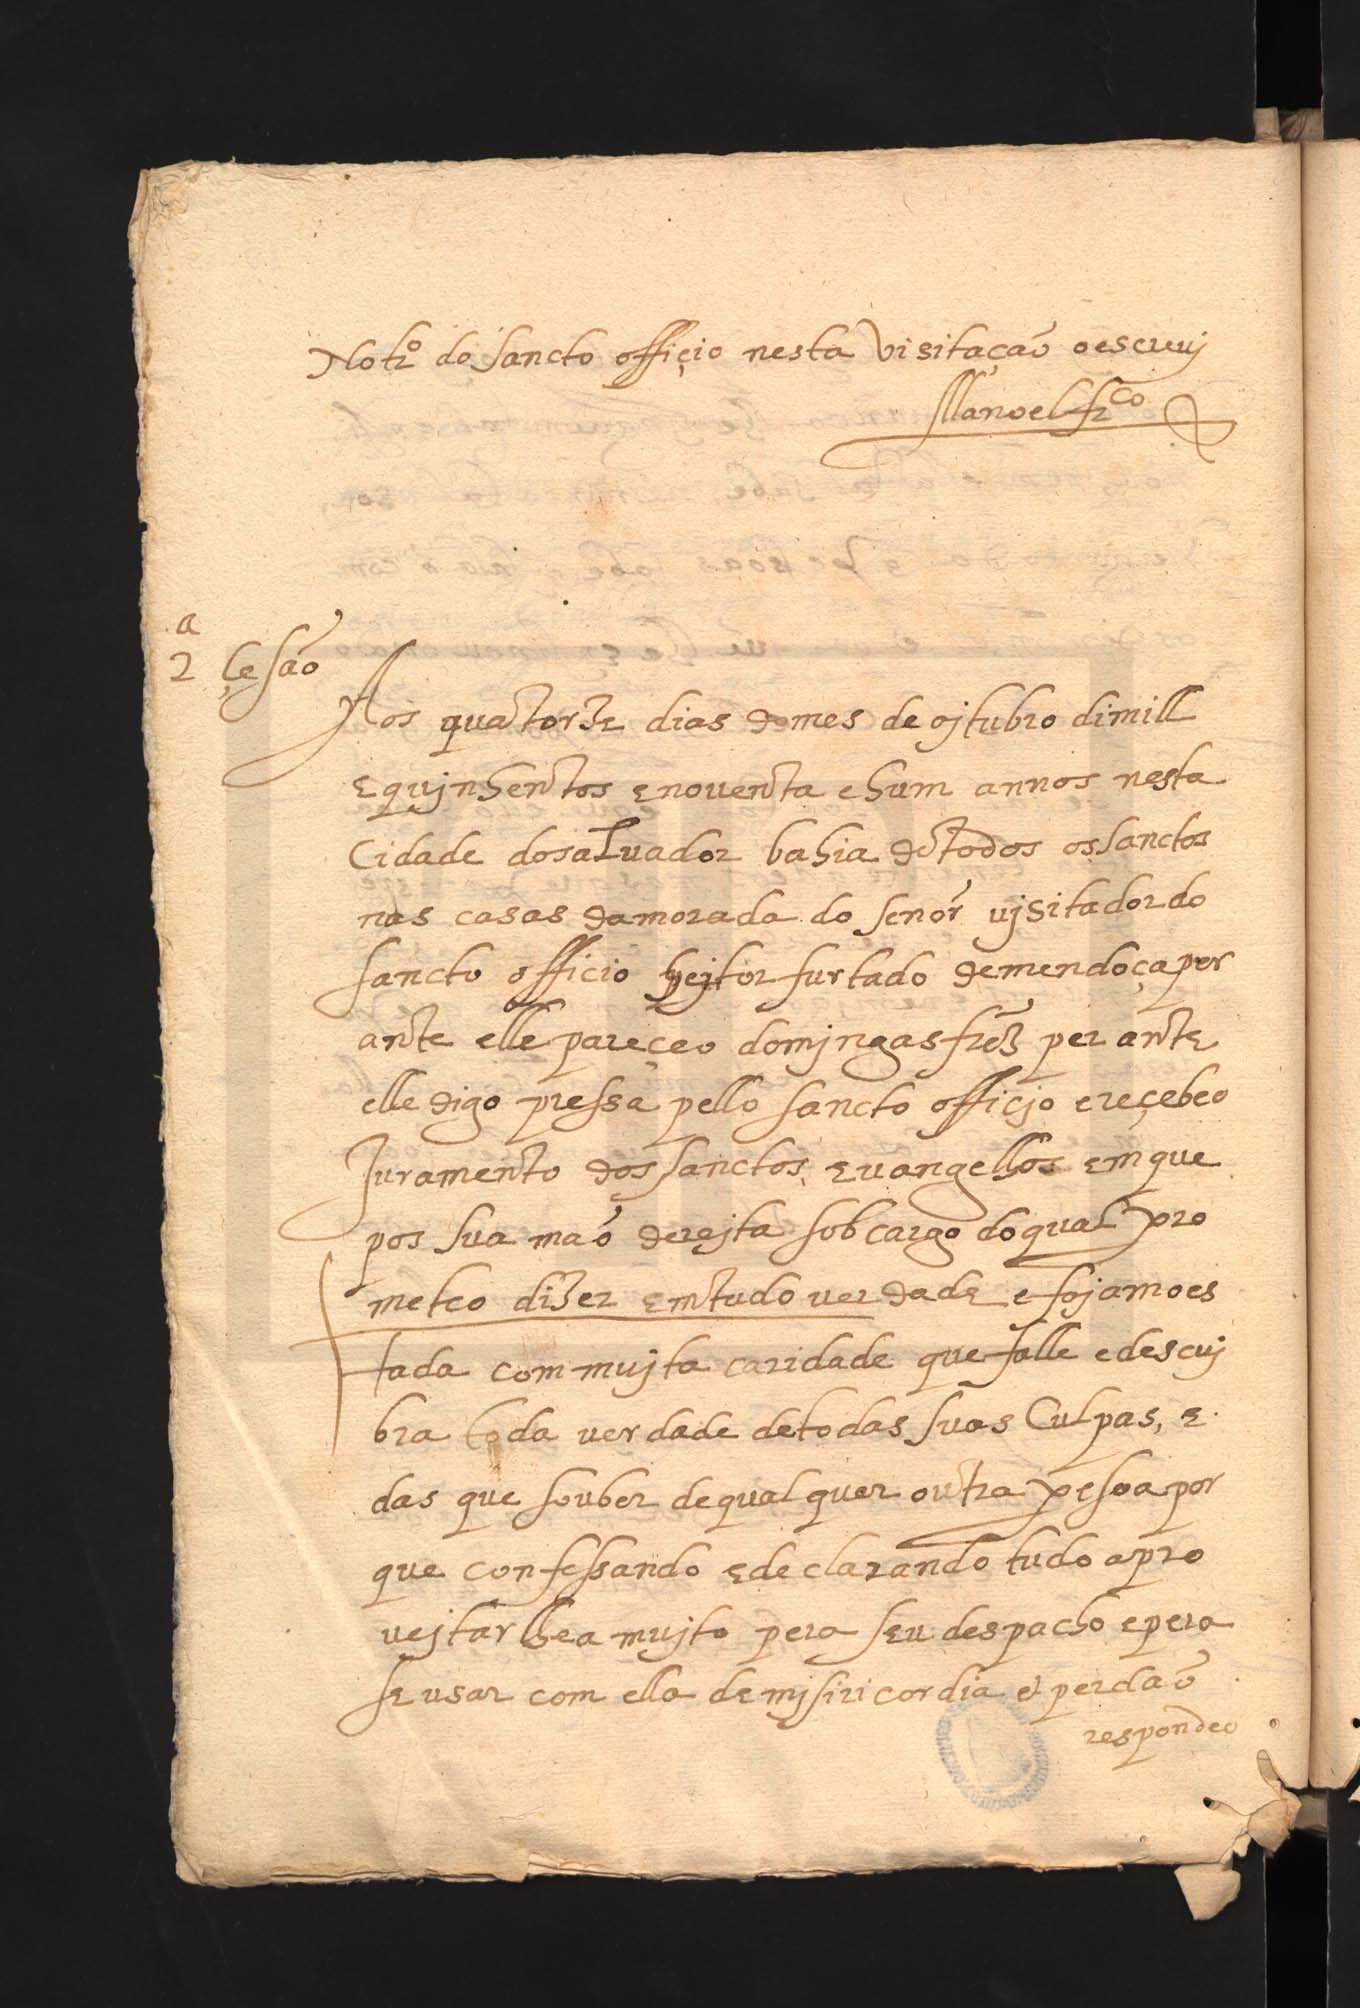 Not.ro do Sancto officio nesta Visitação o escrevj
Manoel fr.co
2.a çesão
Aos quatorze dias do mes de oytubro de mill
e quynhentos e noventa e hum annos nesta
Cidade do salvador bahia de todos os Sanctos
nas casas da morada do senor vjsitador do
Sancto officio heytor furtado de mendoça per
ante elle pareçeo domjngas frz per ante
elle digo pressa pello sancto officjo e reçebeo
Juramento dos Sanctos, evangelhos em que
pos sua mão dereyta sob cargo do qual pro
meteo dizer em tudo verdade e foj amoes
tada com mujta caridade que falle e descuj
bra toda verdade de todas suas Culpas, e
das que souber de qual quer outra pesoa por
que confessando e declarando tudo apro
vejtar lhe a mujto pera seu despacho e pera
se usar com ella de mjsiricordia e perdaõ
respondeo